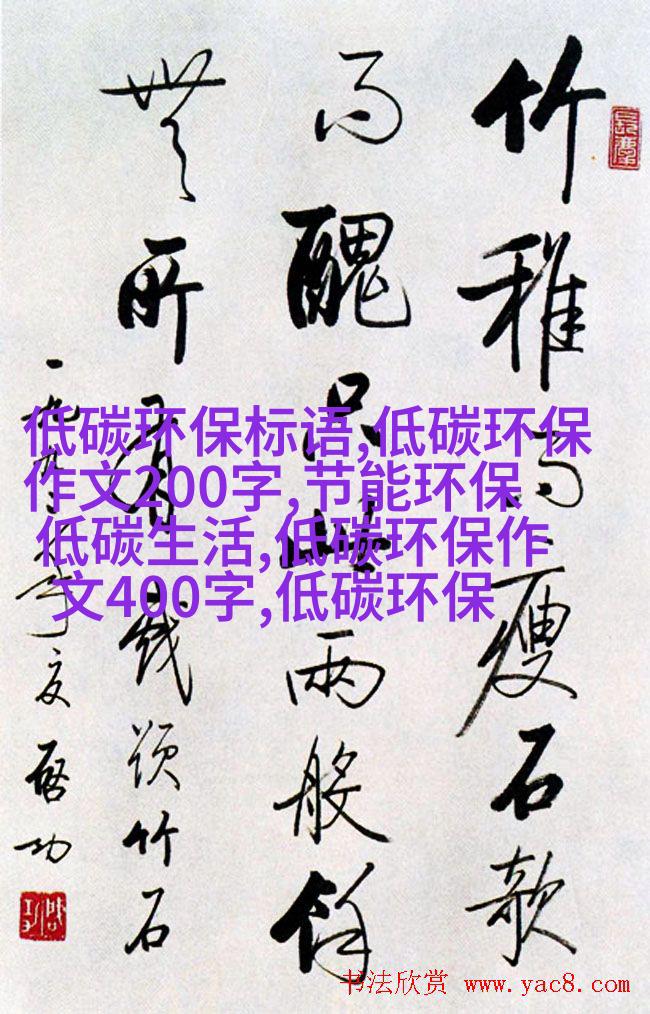 竹稚而瘦石欹
而醜只此兩般餘
無所有戲題竹石
夏啓功
低碳环保标语,低碳环保
作文200字,节能环保
低碳生活,低碳环保作
文400字,低碳环保
书法欣赏 www.yac8.com